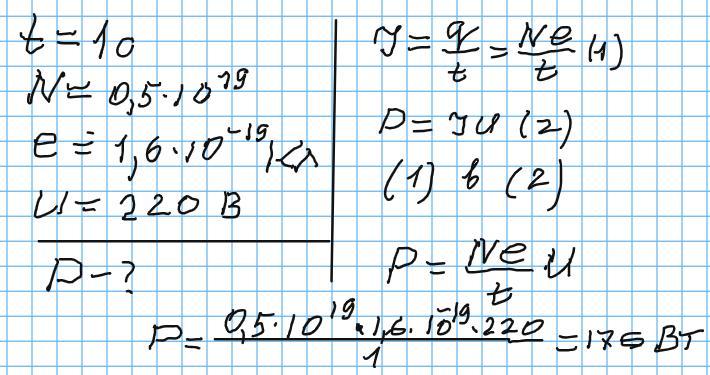 t = 1с
N = 0,5·10^19
e = 1,6·10^-19 Кл
U = 220 В
P - ?
J = q/t = Ne/t (1)
P = JU (2)
(1) в (2)
P = Ne/t U
P = 0,5·10^19·1,6·10^-19·220/1 = 176 Вт